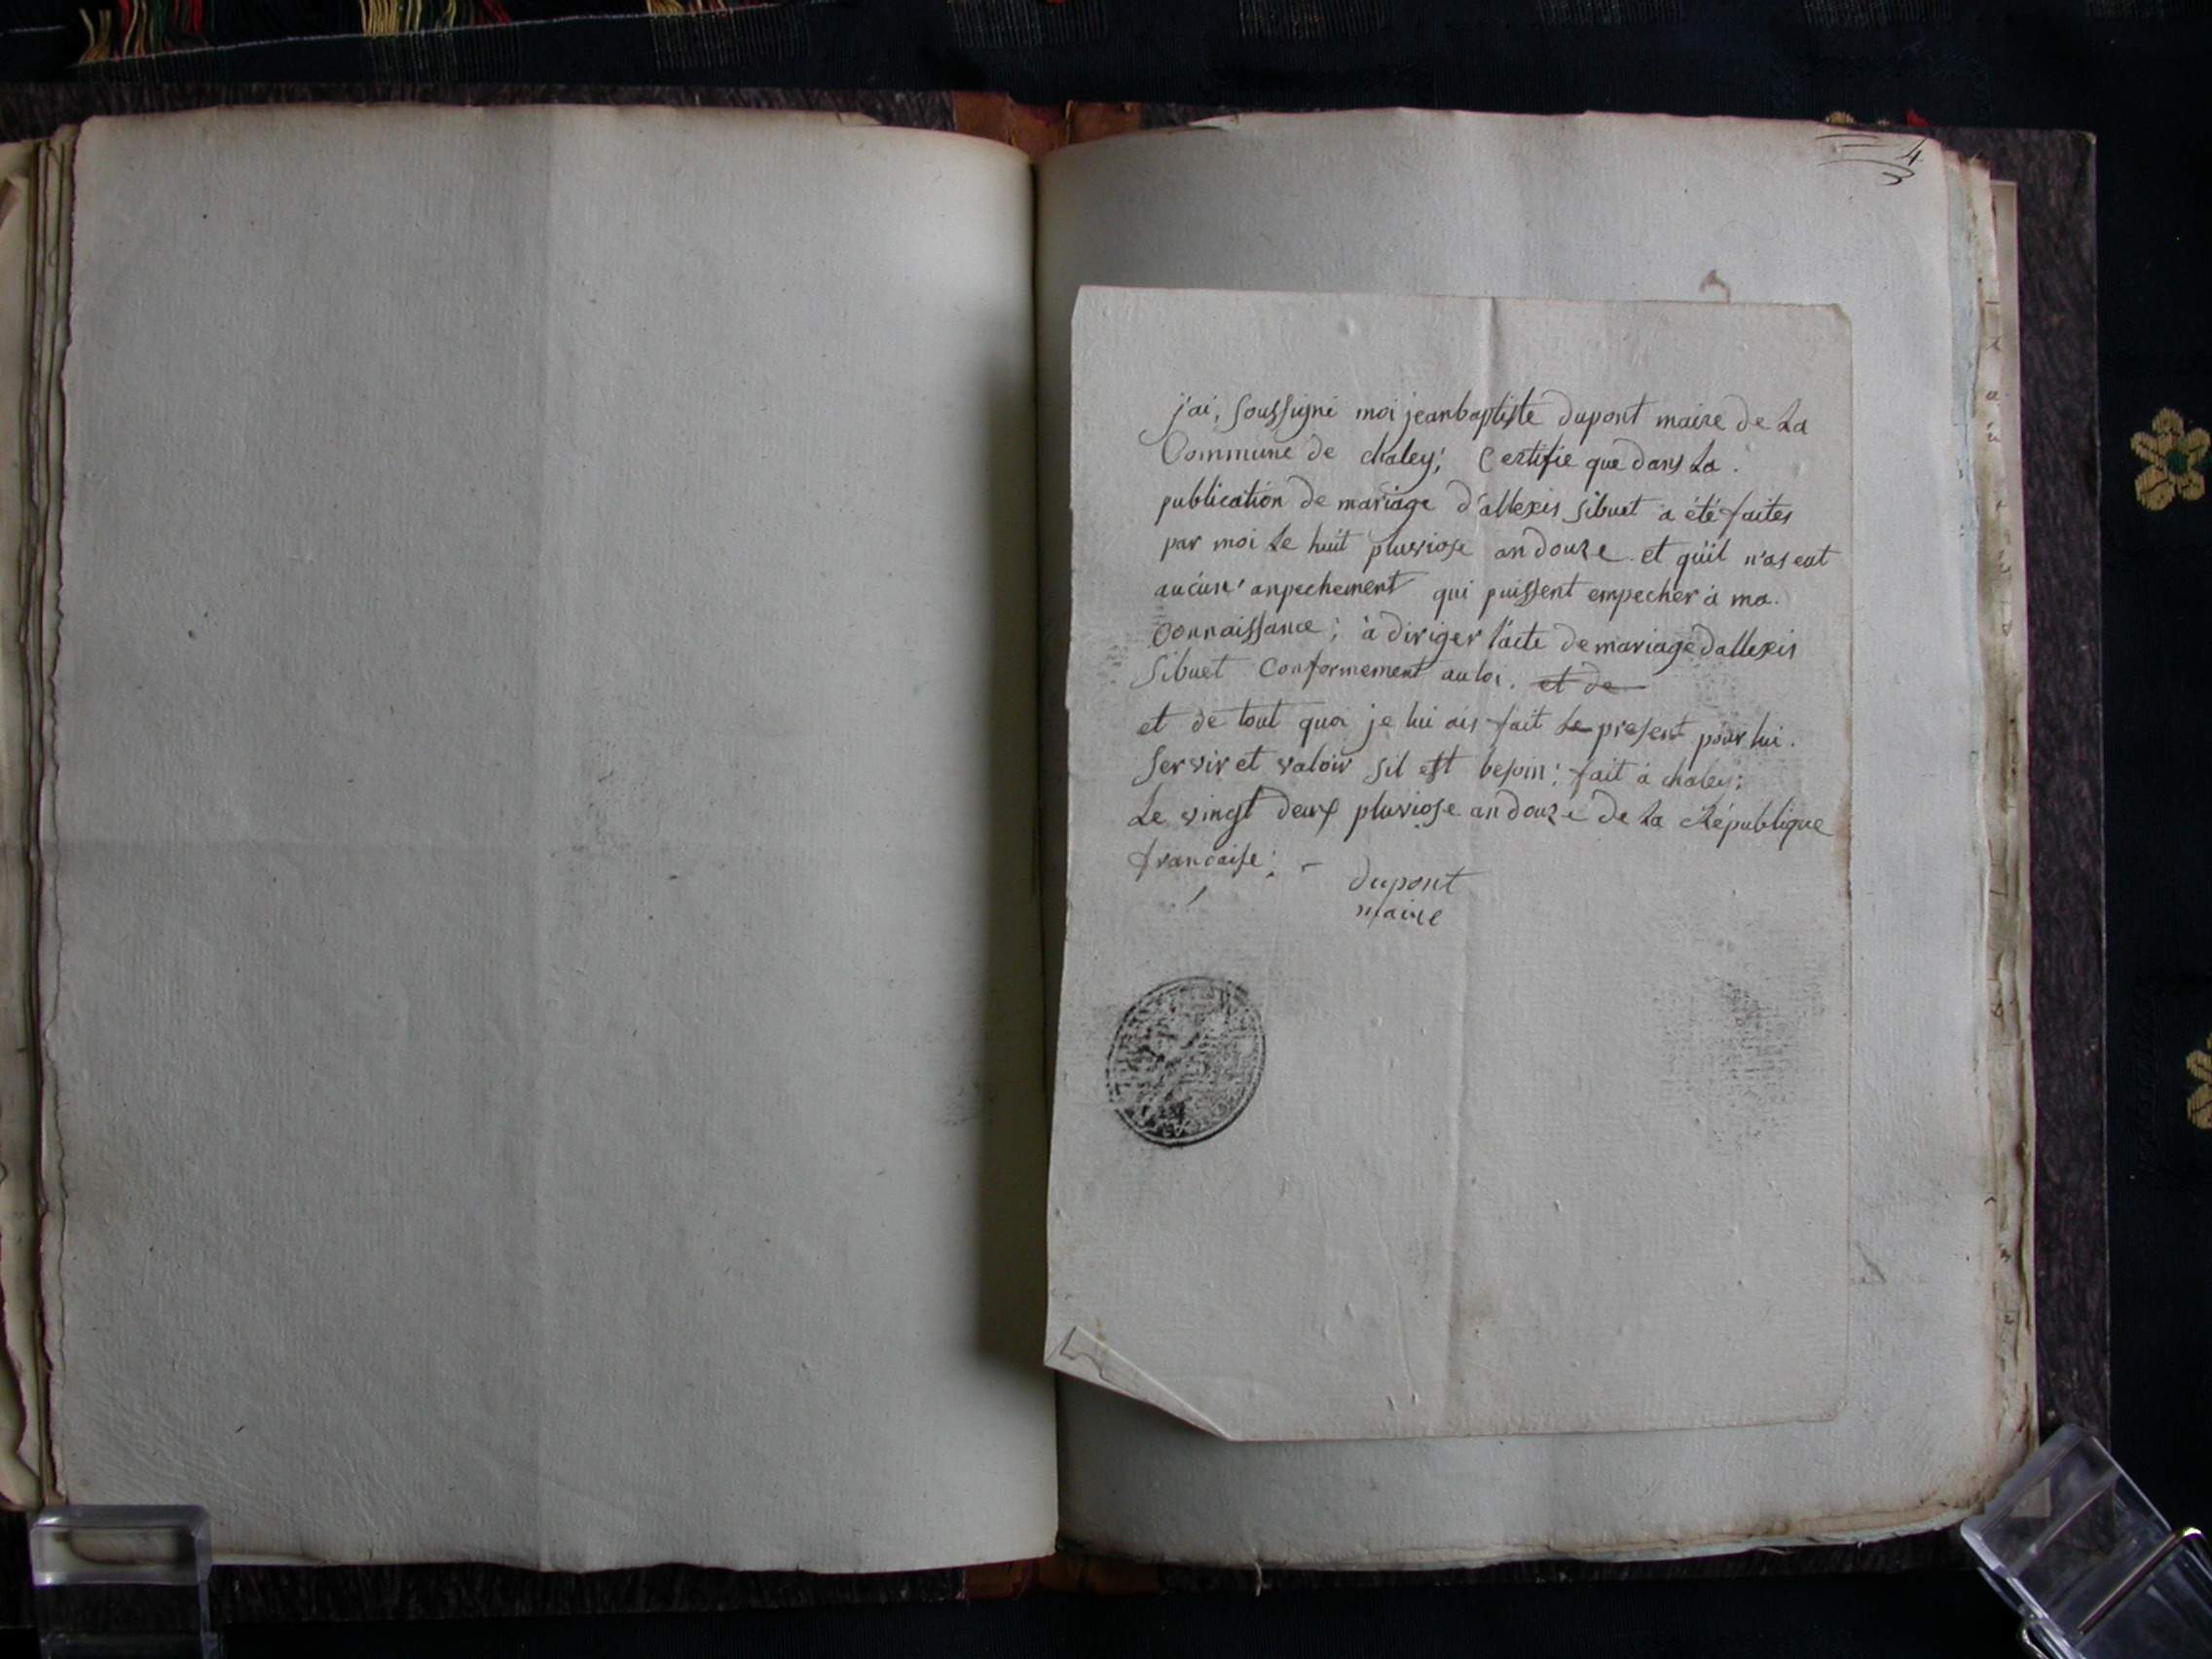 4
j'ai, soussigné moi jeanbaptiste dupont maire de La
Commune de chaley; Certifie que dans La.
publication de mariage d'allexis sibuet a été faites
par moi Le huit pluviose an douze et quil n'as eut
aucune anpechement qui puissent empecher à ma.
Connaissance; à diriger l'acte de mariage d'allexis
Sibuet Conformement au loi. et de
et de tout quoi je lui ais fait Le present pour lui.
servir et valoir sil est besoin; fait à chaley;
Le vingt deux pluviose an douze de La République
francaise; -
dupont
maire